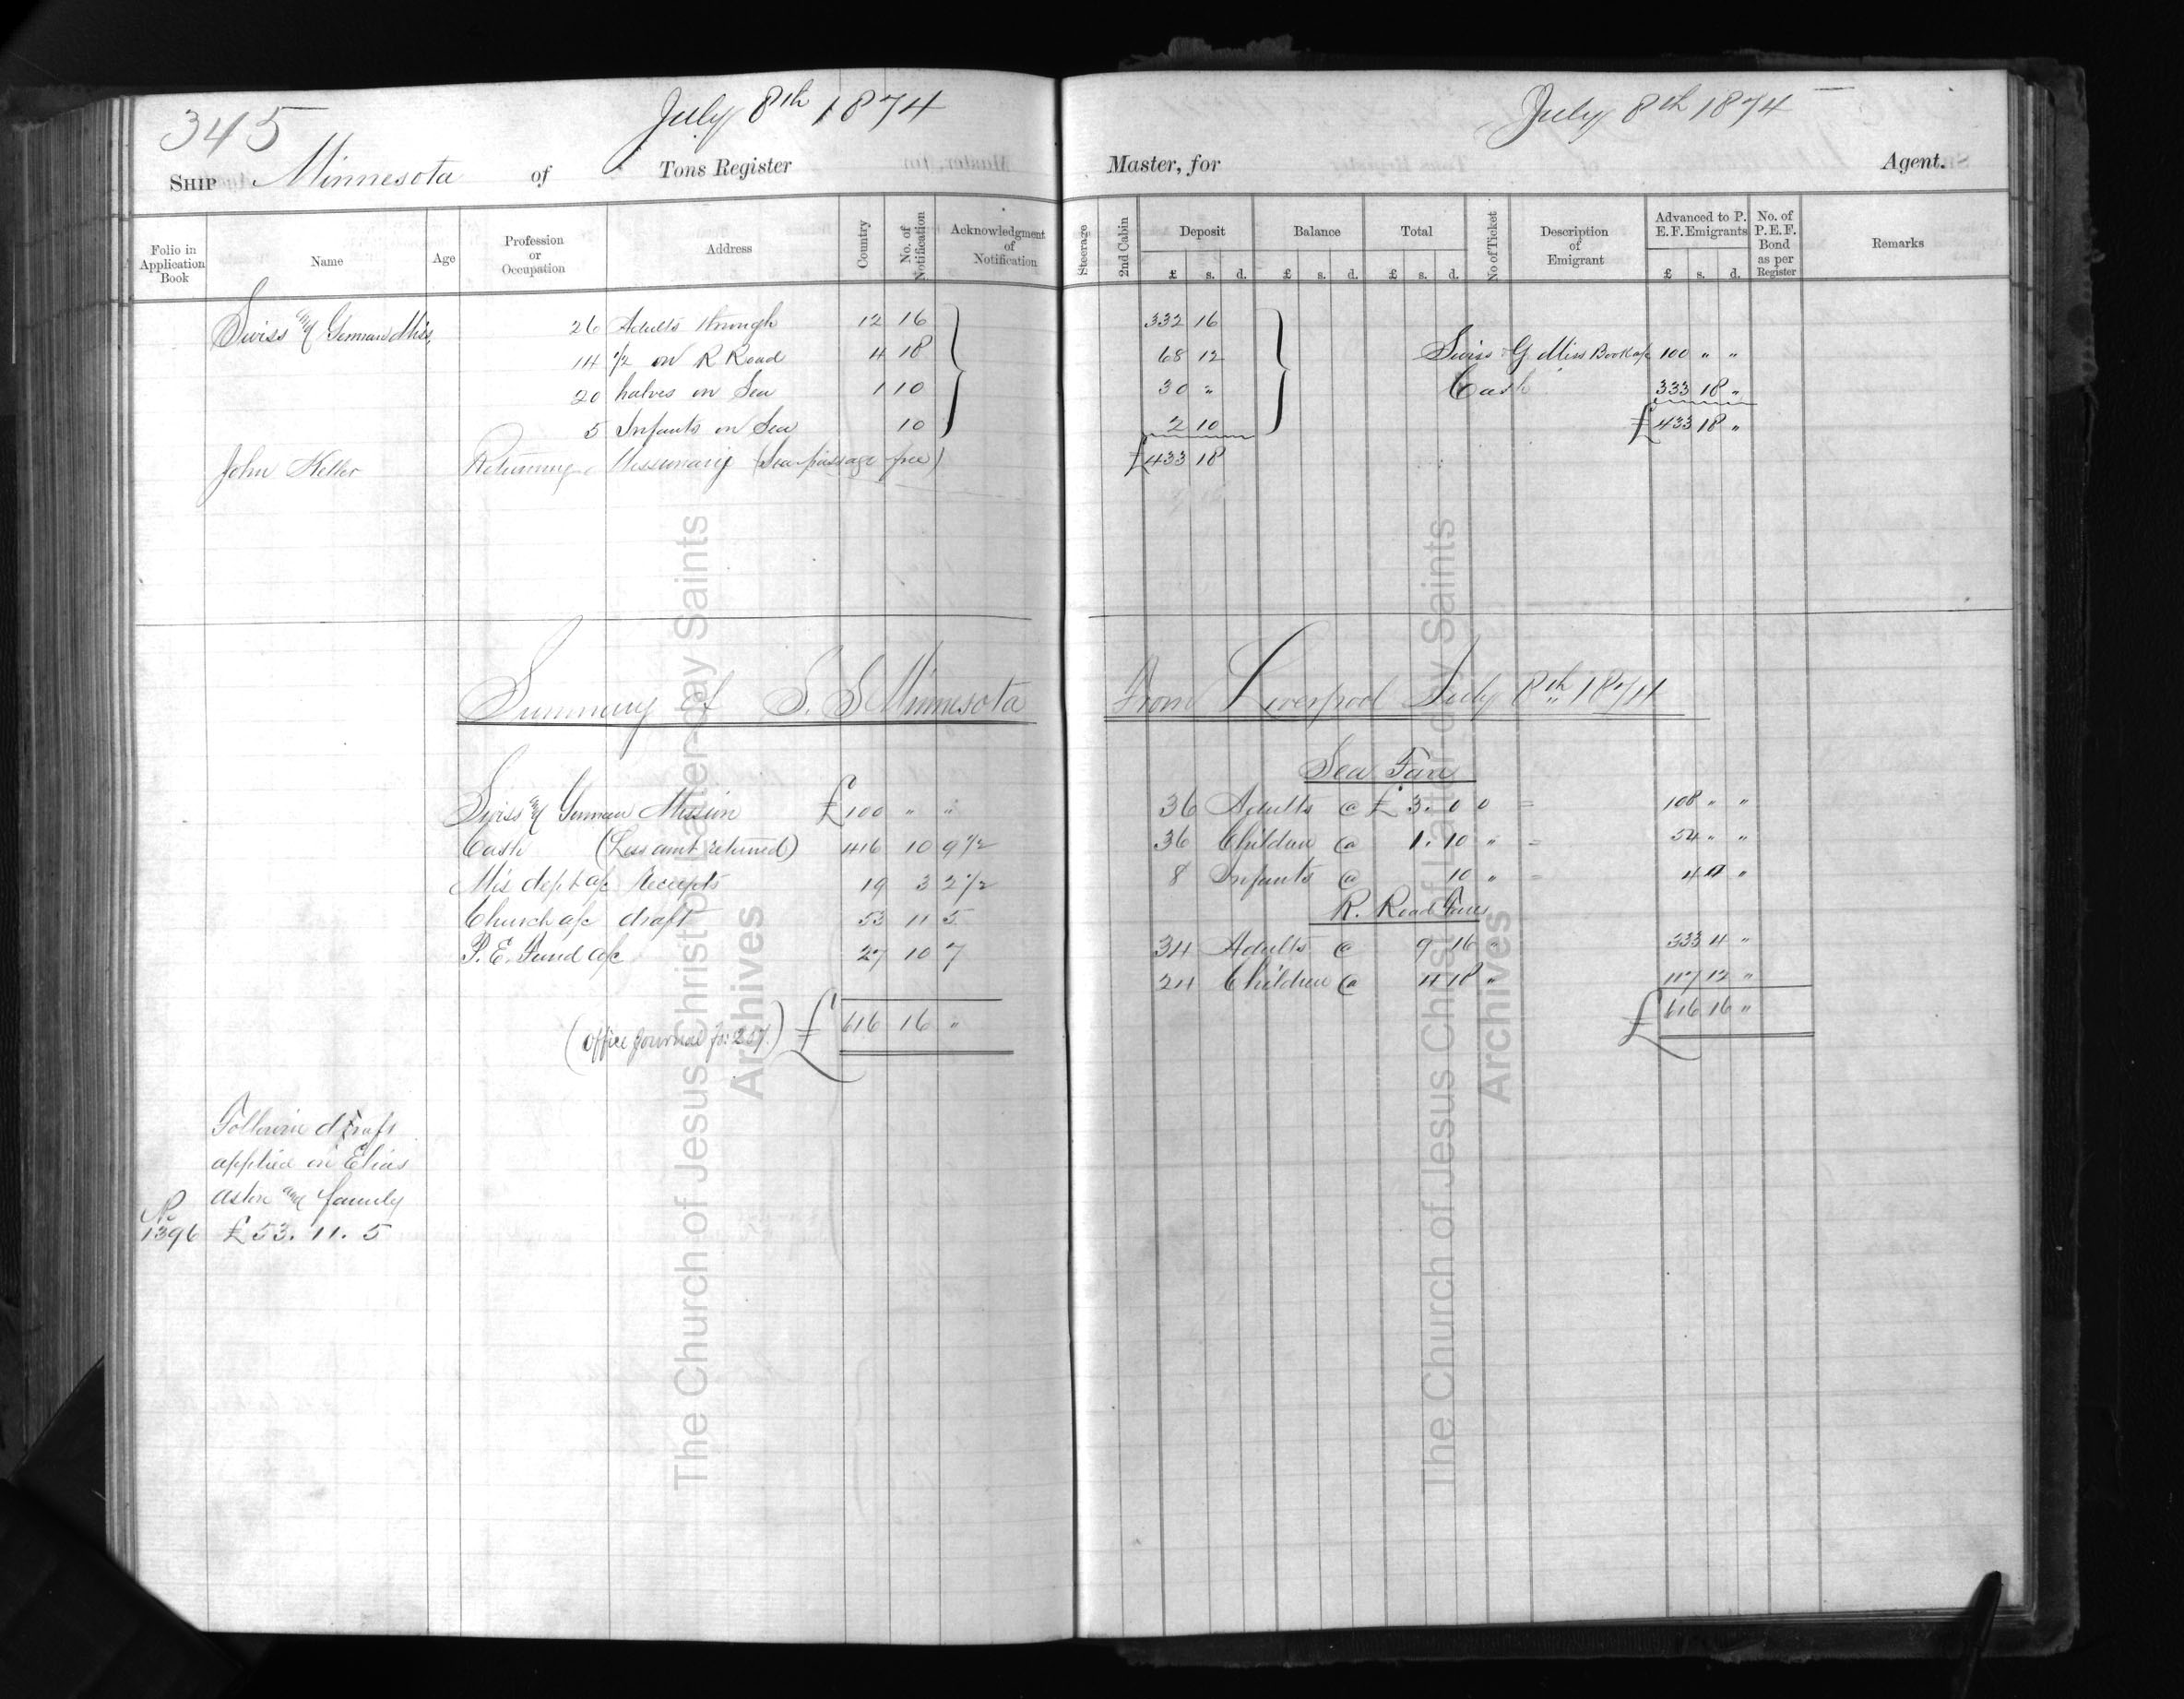 345
July 8th 1874
SHIP Minnesota of Tons Register
Folio in Application Book
Name
Age
Profession or Occupation
Address
Country
No. of Notification
Acknowledgment of Notification
Swiss & German Miss, 26 Adults through 12 16
14 1/2 on R Road 4 18
20 halves on Sea 1 10
5 Infants on Sea 10
John Keller Returning Missionary (Sea passage free)
Summary of S. S Minnesota
Swiss & German Mission £100 " "
Cash (Less amt returned) 416 10 9 1/2
Mis dept a/c Receipts 19 3 2 1/2
Church a/c draft 53 11 5
P. E. Fund a/c 27 10 7
(Office Journal fo: 257.) £616 16 "
Followin draft
applied on Elias
and family
No 1396 £53. 11. 5
July 8th 1874
Master, for Agent.
Steerage
2nd Cabin
Deposit
£ s. d.
Balance
£ s. d.
Total
£ s. d.
No of Ticket
Description of Emigrant
Advanced to P. E. F. Emigrants
£ s. d.
No. of P. E. F. Bond as per Register
Remarks
332 16
68 12 Swiss G Miss Book a/c 100 " "
30 " Cash 333 18 "
2 10 £433 18 "
£433 18
From Liverpool July 8th 1874
Sea Fare
36 Adults @ £3. 0 0 = 108 " "
36 Children @ 1. 10 " = 54 " "
8 Infants @ 10 " = 4 0 "
R. Road Fares
34 Adults @ 9 16 " 333 4 "
24 Children @ 4 18 " 117 12 "
£616 16 "
The Church of Jesus Christ of Latter-day Saints
Archives
The Church of Jesus Christ of Latter-day Saints
Archives